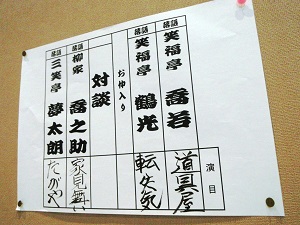 演目
落語 笑福亭 喬若 道具屋
落語 笑福亭 鶴光 転失気
お仲入り
対談
落語 柳家 喬之助 家見舞い
落語 三笑亭 夢太朗 たがや